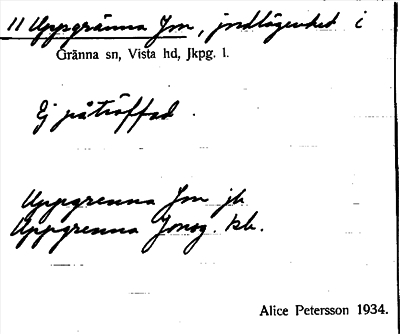 11 Uppgränna Jm, jordlägenhet i
Gränna sn, Vista hd, Jkpg. l.
Ej påträffad.
Uppgrenna Jm jb
Uppgrenna Jonsg. kb.
Alice Petersson 1934.